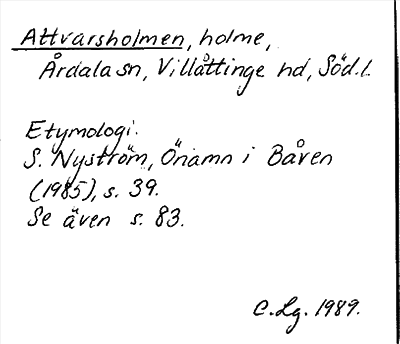 Attvarsholmen, holme,
Årdala sn, Villåttinge hd, Söd.l.
Etymologi.
S. Nyström, Önamn i Båven
(1985), s. 39.
Se även s. 83.
C.Lg. 1989.